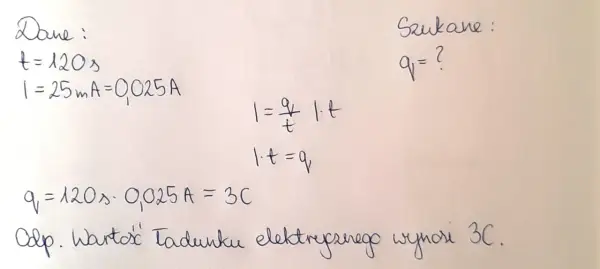 Dane:
Szukane:
t = 120 s
q = ?
I = 25 mA = 0,025 A
I = q/t |·t
I·t = q
q = 120 s · 0,025 A = 3C
Odp. Wartość ładunku elektrycznego wynosi 3C.